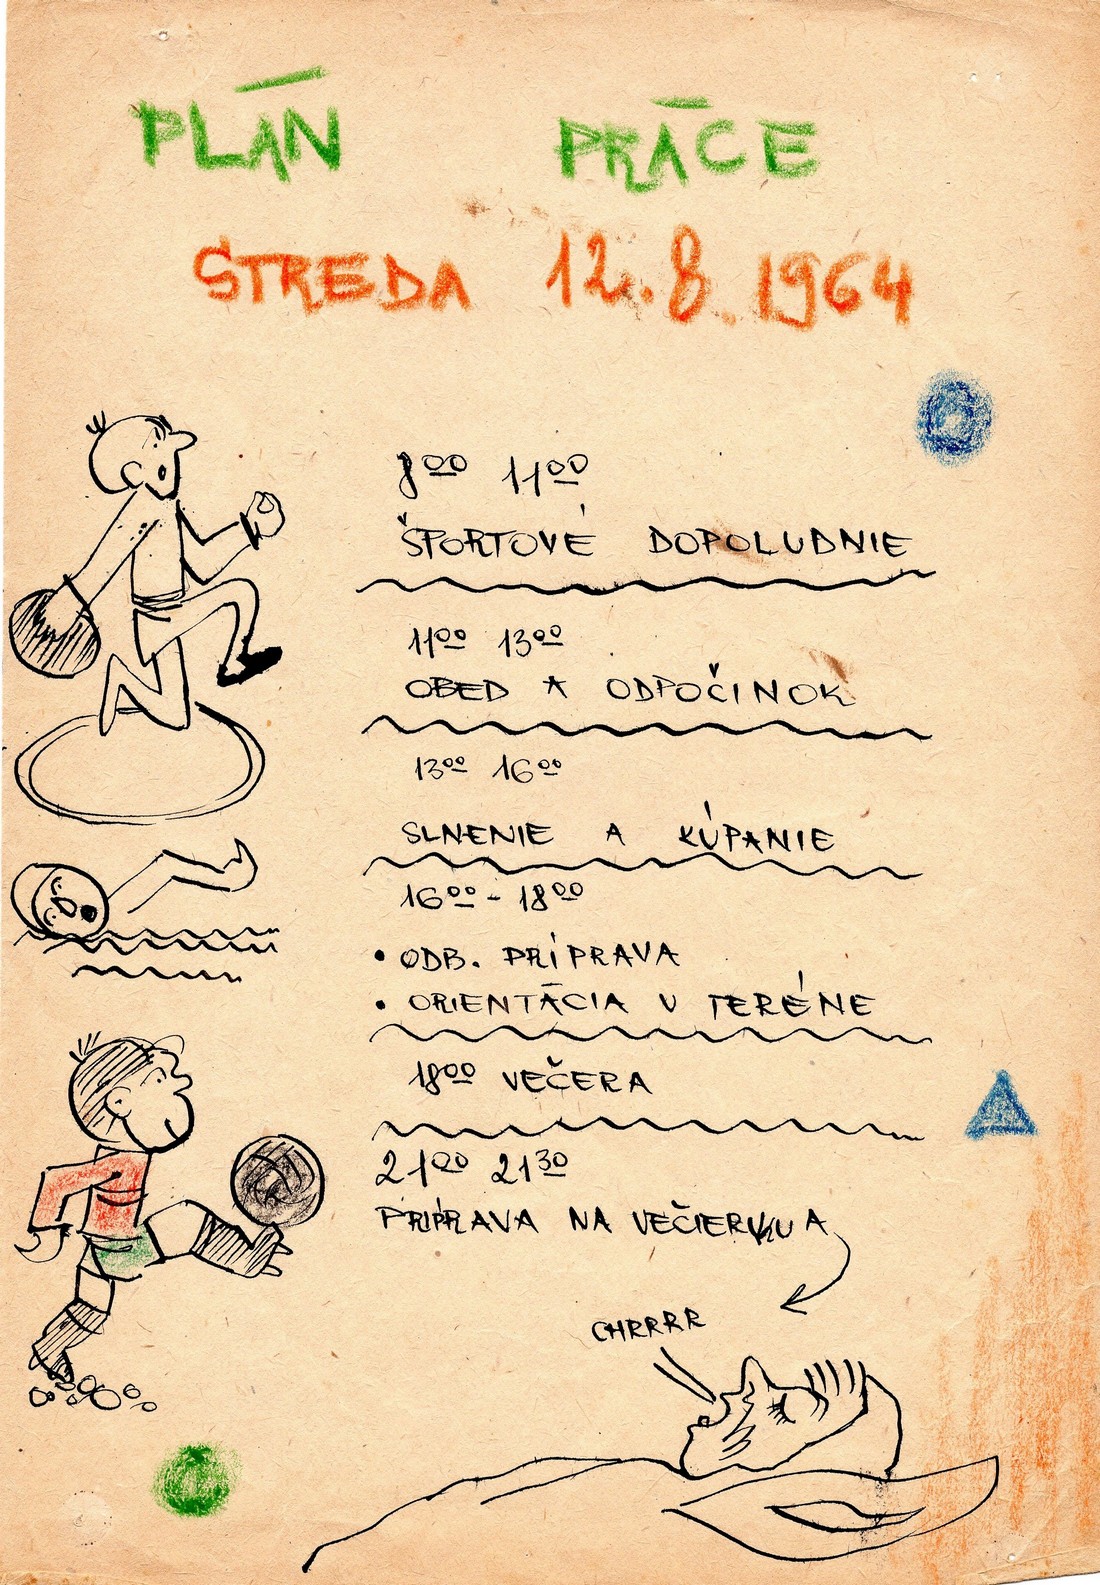 PLÁN PRÁCE
STREDA 12.8.1964
8⁰⁰ 11⁰⁰
ŠPORTOVÉ DOPOLUDNIE
11⁰⁰ 13⁰⁰
OBED A ODPOČINOK
13⁰⁰ 16⁰⁰
SLNENIE A KÚPANIE
16⁰⁰ - 18⁰⁰
• ODB. PRÍPRAVA
• ORIENTÁCIA V TERÉNE
18⁰⁰ VEČERA
21⁰⁰ 21³⁰
PRÍPRAVA NA VEČIERKU A
CHRRRR